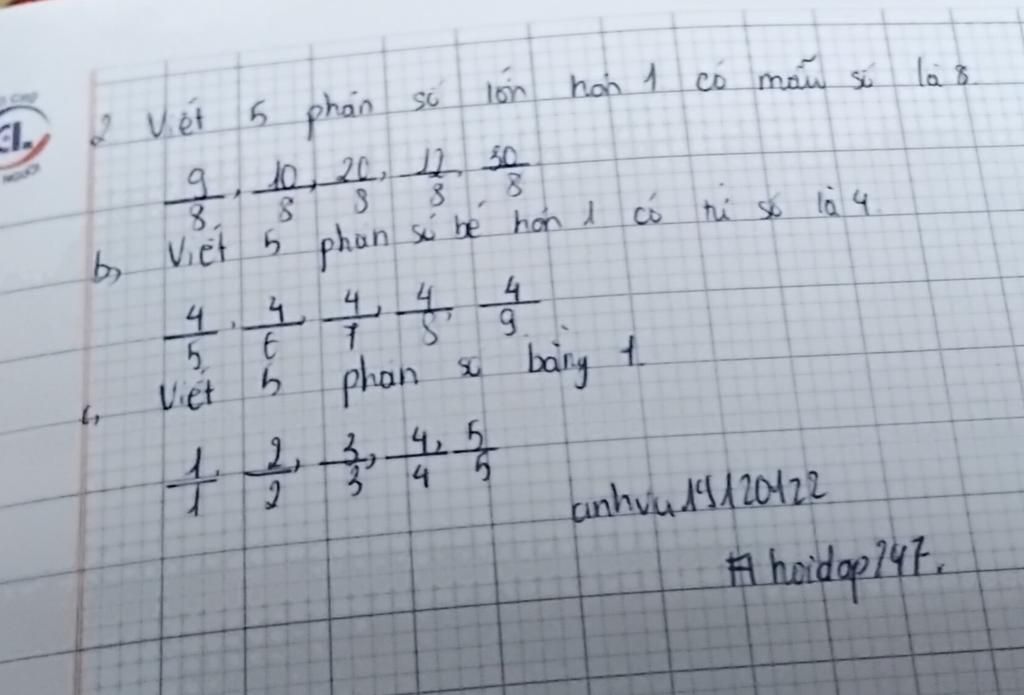 2 Viết 5 phân số lớn hơn 1 có mẫu số là 8
9/8, 10/8, 20/8, 12/8, 30/8
b, Viết 5 phân số bé hơn 1 có tử số là 4
4/5, 4/6, 4/7, 4/8, 4/9
c, Viết 5 phân số bằng 1
1/1, 2/2, 3/3, 4/4, 5/5
anhvu19120122
# hoidap247.